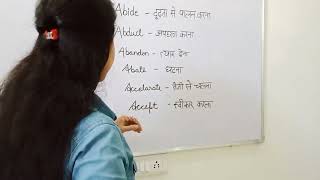 Abide - दृढ़ता से पालन करना
Abduct - अपहरण करना
Abandon - त्याग देना
Abate - घटना
Accelarate - तेजी से चलना
Accept - स्वीकार करना